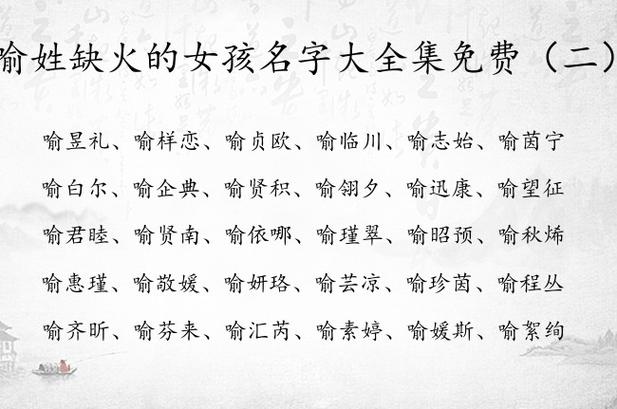 喻姓缺火的女孩名字大全集免费（二）
喻昱礼、喻样恋、喻贞欧、喻临川、喻志始、喻茵宁
喻白尔、喻企典、喻贤积、喻翎夕、喻迅康、喻望征
喻君睦、喻贤南、喻依哪、喻瑾翠、喻昭预、喻秋烯
喻惠瑾、喻敬媛、喻妍珞、喻芸凉、喻珍茵、喻程丛
喻齐昕、喻芬来、喻汇芮、喻素婷、喻媛斯、喻絮绚